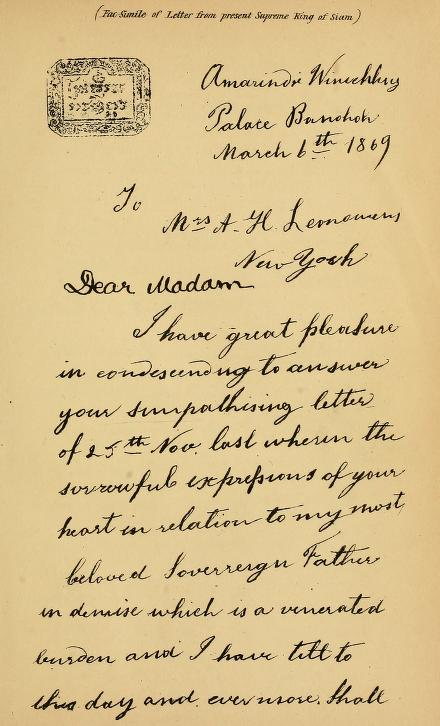 (Fac-Simile of Letter from present Supreme King of Siam)
Amarindr Winichhay
Palace Bangkok
March 6th 1869
To
Mrs A. H. Leonowens
New York
Dear Madam
I have great pleasure
in condescending to answer
your simpathising letter
of 25th Nov. last wherein the
sorrowful expressions of your
heart in relation to my most
beloved Soverreign Father
in demise which is a venerated
burden and I have till to
this day and evermore. Shall